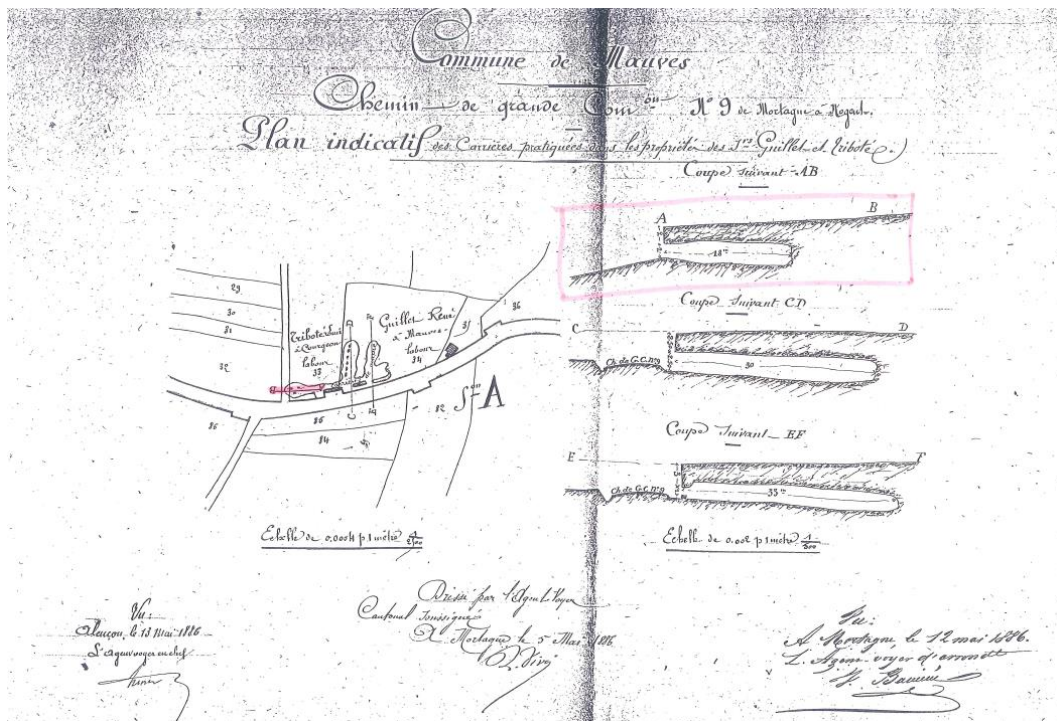 Commune de Mauves
Chemin de grande Com^on N° 9 de Mortagne à Regach.
Plan indicatif des Carrières pratiquées dans les propriétés des S^rs Guillet et Triboté.
Coupe suivant AB
A
B
18^m
Coupe Suivant CD
C
D
Ch. de G.C. N°9
30
Coupe Suivant EF
E
F
Ch. de G.C. N°9
35^m
Echelle de 0.002 p 1 mètre 1/500
29
30
31
32
Triboté
à Courgeon
labour
33
Guillet René
à Mauves
labour
34
35
36
S^on A
12
16
14
15
Echelle de 0.0004 p 1 mètre 1/2500
Vu:
Alençon, le 13 Mai 1886
L'agent voyer en chef
Dressé par l'Agent-Voyer
Cantonal soussigné
A Mortagne le 5 Mai 1886
Vu:
A Mortagne le 12 mai 1886.
L'Agent-voyer d'arrondt